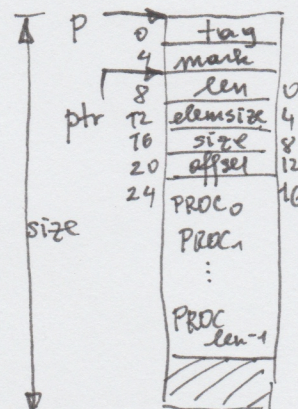 p 0 tag
4 mark
ptr 8 len 0
12 elemsize 4
16 size 8
20 offset 12
24 PROC0 16
size PROC1
⋮
PROC len-1